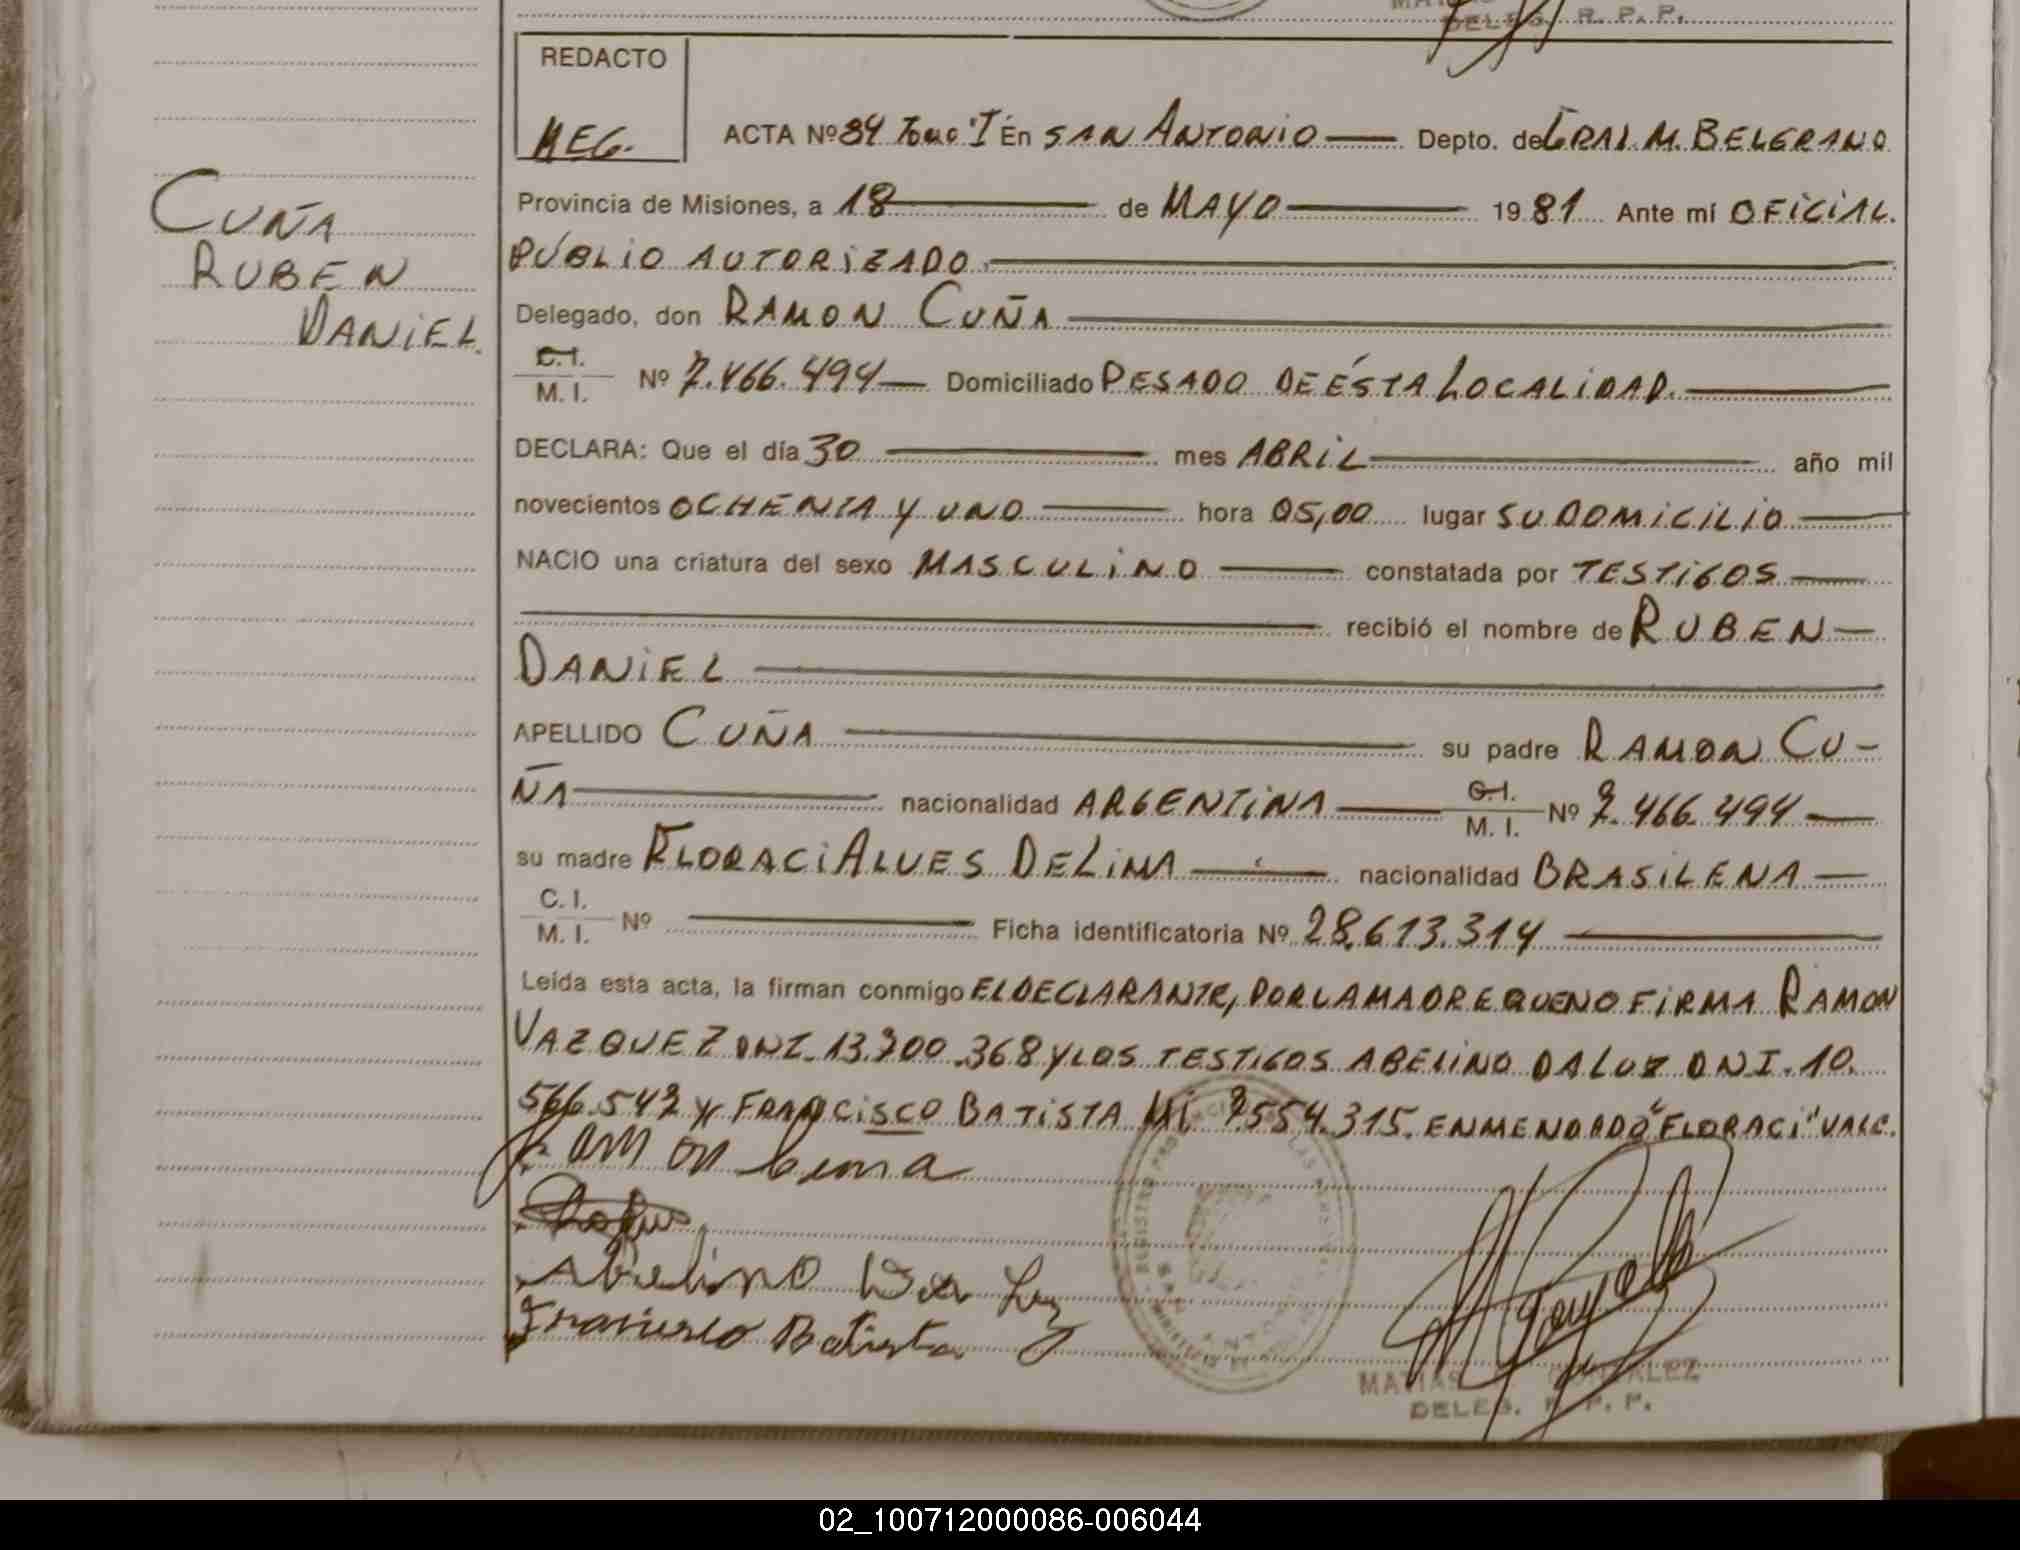 DELEG. R. P. P.
REDACTO
MEG.
ACTA Nº 84 Tomo "I" En SAN ANTONIO Depto. de GRAL M. BELGRANO
CUÑA
RUBEN
DANIEL.
Provincia de Misiones, a 18 de MAYO 1981 Ante mí OFICIAL.
PÚBLIO AUTORIZADO.
Delegado, don RAMON CUÑA
C.I. / M. I. Nº 7.466.494 Domiciliado PESADO DE ÉSTA LOCALIDAD.
DECLARA: Que el día 30 mes ABRIL año mil
novecientos OCHENTA Y UNO hora 05,00 lugar SU DOMICILIO
NACIO una criatura del sexo MASCULINO constatada por TESTIGOS
recibió el nombre de RUBEN
DANIEL
APELLIDO CUÑA su padre RAMON CU-
ÑA nacionalidad ARGENTINA C.I. / M. I. Nº 7.466.494
su madre FLORACI ALVES DE LIMA nacionalidad BRASILENA
C. I. / M. I. Nº Ficha identificatoria Nº 28.613.314
Leída esta acta, la firman conmigo EL DECLARANTE, POR LA MADRE QUE NO FIRMA RAMON
VAZQUEZ DNI. 13.700.368 Y LOS TESTIGOS ABELINO DA LUZ DNI. 10.
566.542 Y FRANCISCO BATISTA MI 7.554.315. ENMENDADO "FLORACI" VALE.
Ramon Cuna
Abelino Da Luz
Francisco Batista
MATIAS GONZALEZ
DELEG. R. P. P.
02_100712000086-006044